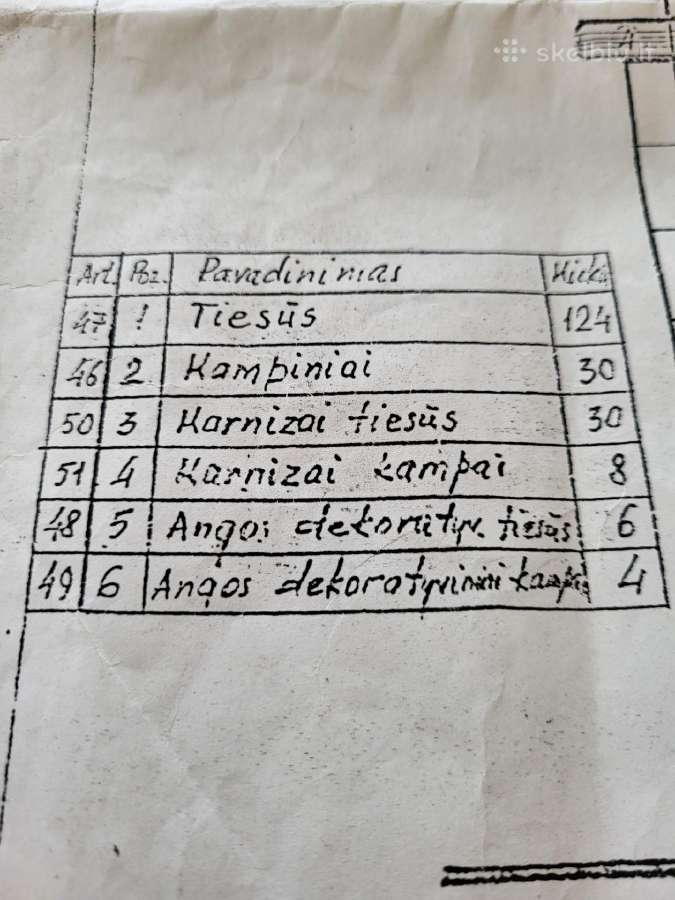 skelbiu.lt
Art. Poz. Pavadinimas Kiek.
47 1 Tiesūs 124
46 2 Kampiniai 30
50 3 Karnizai tiesūs 30
51 4 Karnizai kampai 8
48 5 Angos dekoratyv. tiesūs 6
49 6 Angos dekoratyviniai 4